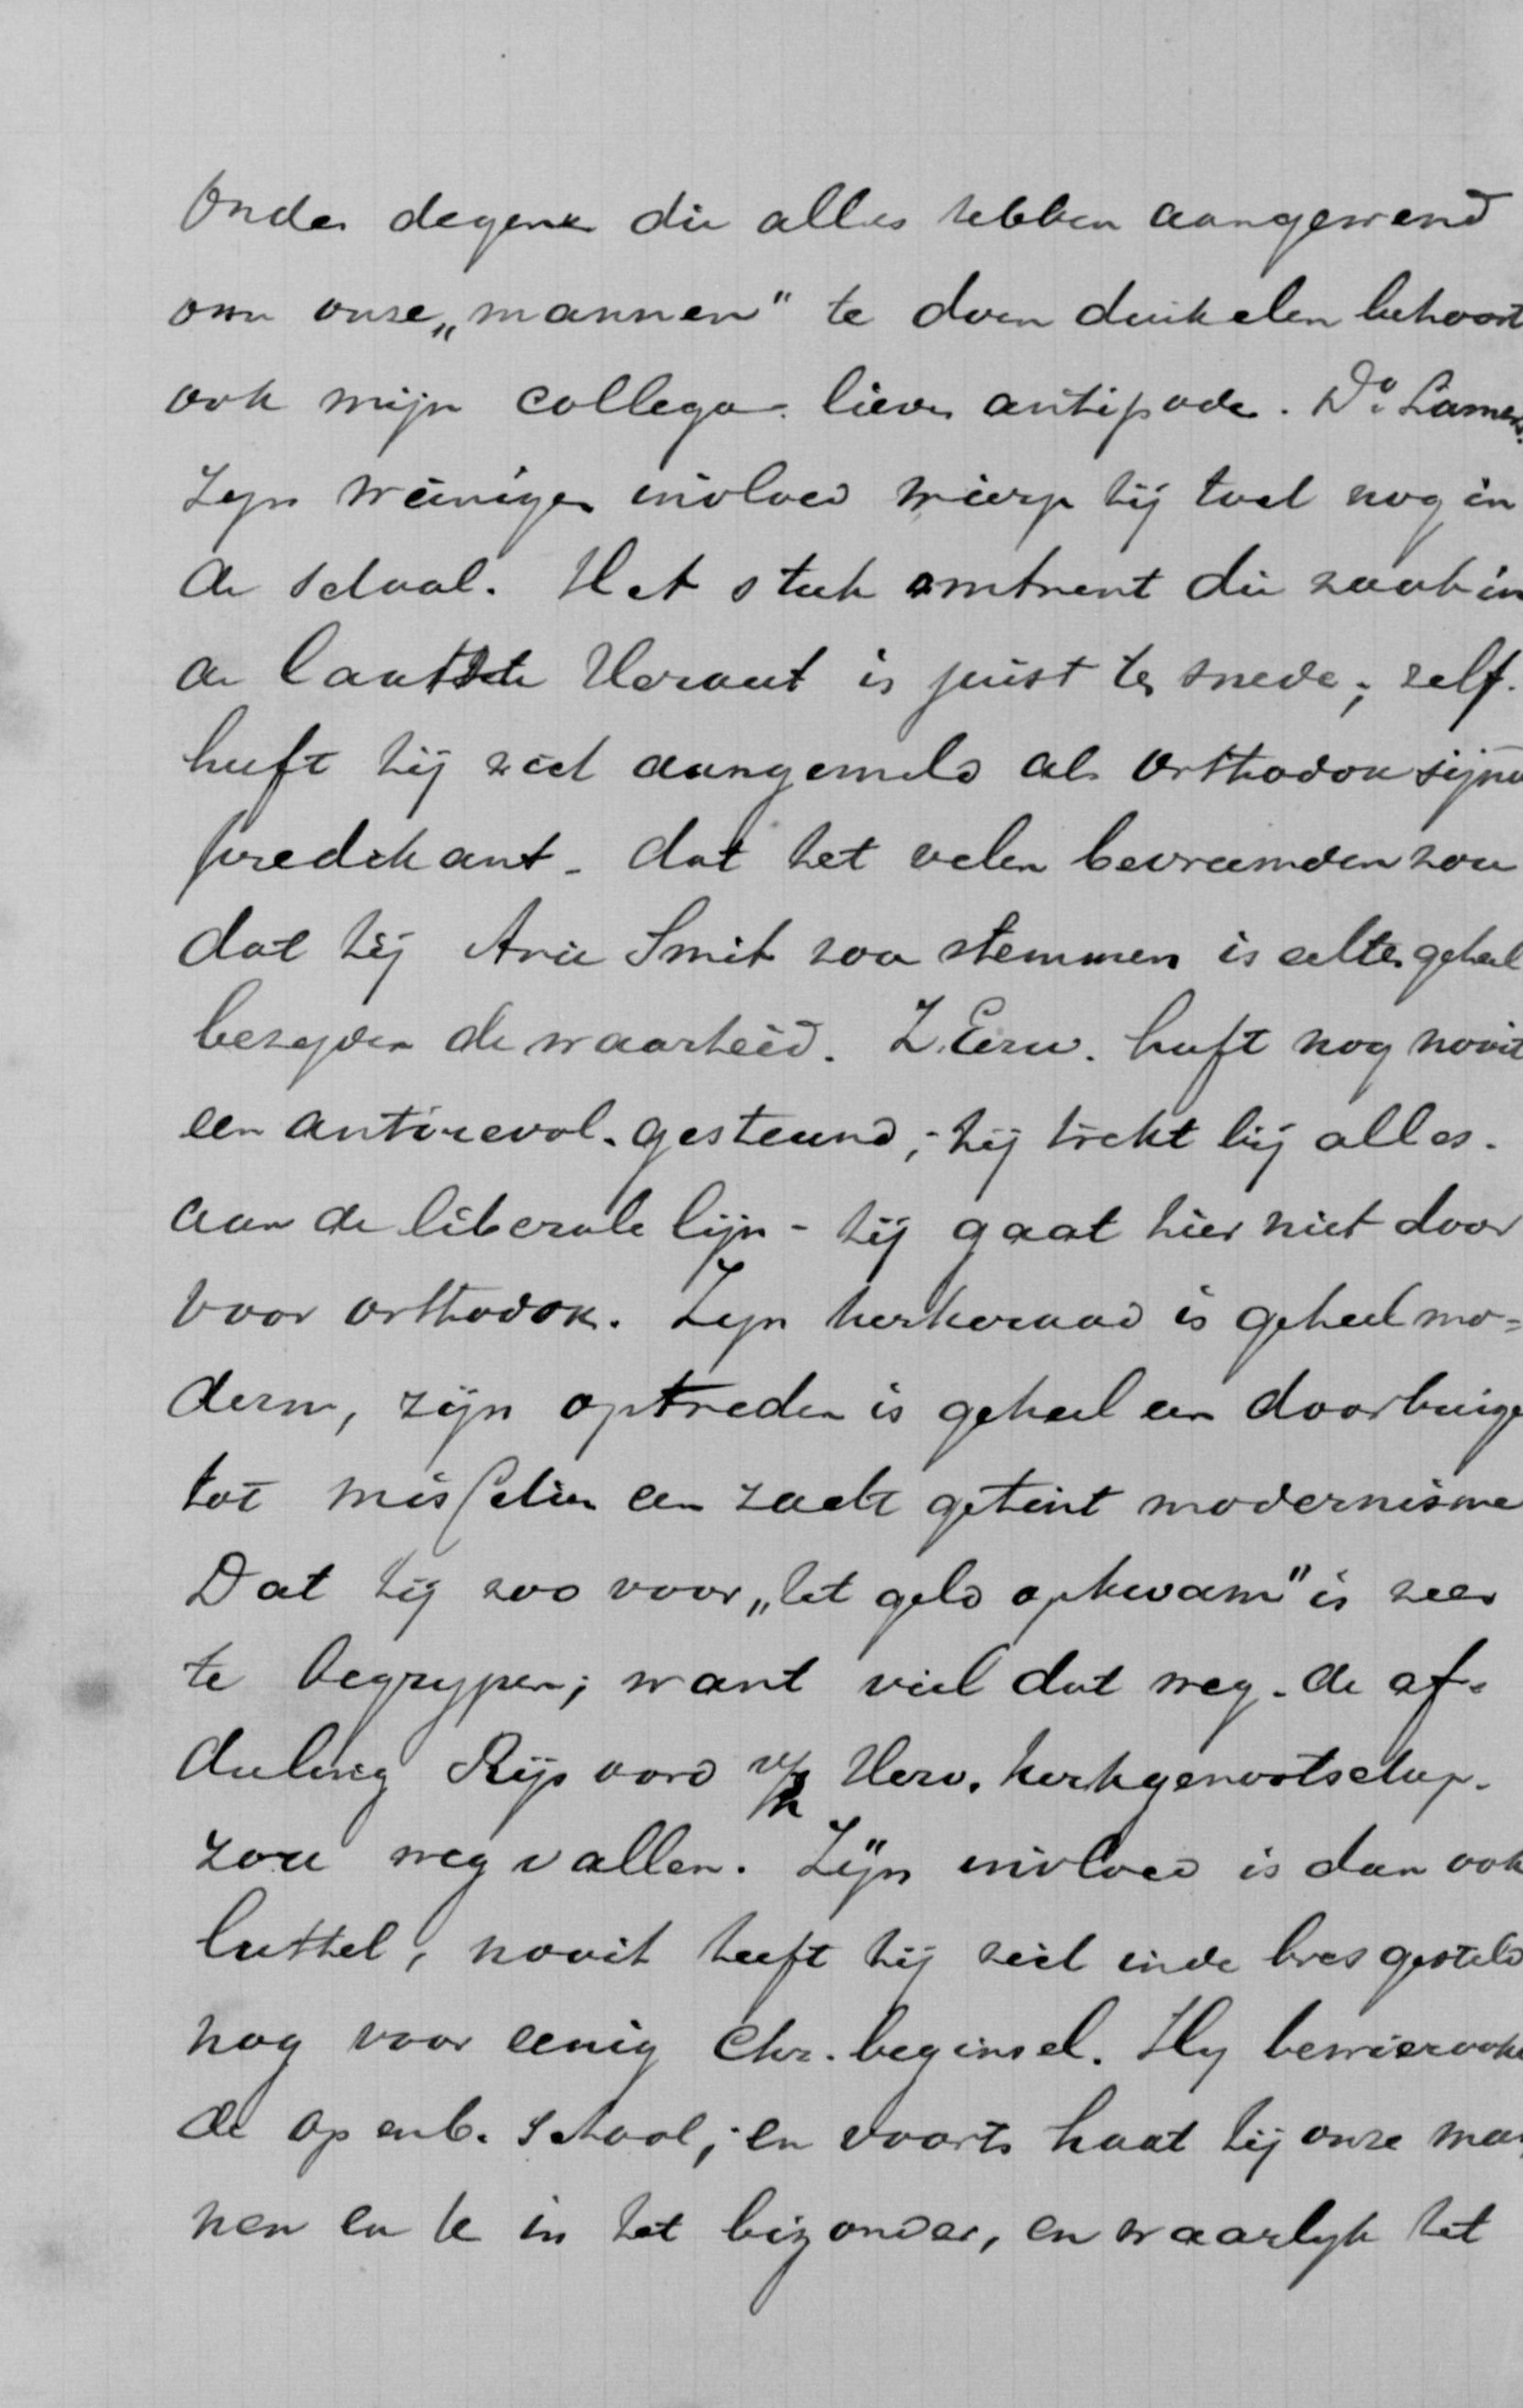 Onder degene die alles hebben aangewend
om onze „mannen" te doen duikelen behoort
ook mijn collega - liever antipode. Ds. Lamers.
Zyn weinigen invloed wierp hij toch nog in
de schaal. Het stuk omtrent die zaak in
de laatste Heraut is juist ter snede; zelf.
heeft hij zich aangemeld als orthodox zijnd
predikant - dat het velen bevreemden zou
dat hij Arie Smit zou stemmen is echter geheel
bezyden de waarheid. Z.Eerw. heeft nog nooit
een antirevol. gesteund; hij trekt bij alles.
aan de liberale lijn - hij gaat hier niet door
voor orthodox. Zyn kerkeraad is geheel mo=
dern, zijn optreden is geheel een doorbuige
tot misschien een zacht getint modernisme
Dat hij zoo voor „het geld opkwam" is zeer
te begrypen; want viel dat weg - de af=
deeling Rijsoord v/h Herv. kerkgenootschap.
zou wegvallen. Zijn invloed is dan ook
luttel, nooit heeft hij zich in de bres gesteld
nog voor eenig Chr. beginsel. Hy bewierookt
de openb. school; en voorts haat hij onze man
nen en K in het bizonder, en waarlyk het